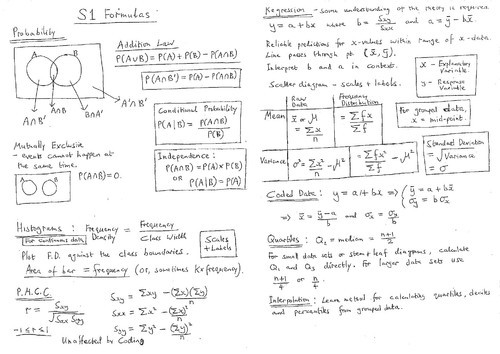 S1 Formulas
Probability
A
B
A∩B'
A∩B
B∩A'
A'∩B'
Addition Law
P(A∪B) = P(A) + P(B) - P(A∩B)
P(A∩B') = P(A) - P(A∩B)
Conditional Probability
P(A|B) = P(A∩B) / P(B)
Independence:
P(A∩B) = P(A) × P(B)
OR P(A|B) = P(A)
Mutually Exclusive
- events cannot happen at
the same time.
P(A∩B) = 0.
Histograms: Frequency Density = Frequency / Class Width
For continuous data
Scales + Labels
Plot F.D. against the class boundaries.
Area of bar = frequency (or, sometimes k × frequency).
P.M.C.C
r = Sxy / √Sxx Syy
-1 ≤ r ≤ 1
Sxy = Σxy - (Σx)(Σy) / n
Sxx = Σx² - (Σx)² / n
Syy = Σy² - (Σy)² / n
Unaffected by Coding
Regression - some understanding of the theory is required
y = a + bx where b = Sxy / Sxx and a = ȳ - bx̄
Reliable predictions for x-values within range of x-data.
Line passes through pt (x̄, ȳ).
Interpret b and a in context.
Scatter diagram - scales + labels.
x - Explanatory Variable
y - Response Variable
Raw Data
Frequency Distribution
Mean
x̄ = μ = Σx / n
= Σfx / Σf
Variance
σ² = Σx² / n - μ²
= Σfx² / Σf - μ²
For grouped data, x = mid-point.
Standard Deviation = √Variance = σ
Coded Data: y = a + bx ⇒ { ȳ = a + bx̄
σy = b σx
⇒ x̄ = ȳ - a / b and σx = σy / b
Quartiles: Q₂ = median = n+1 / 2
For small data sets or stem + leaf diagrams, calculate
Q₁ and Q₃ directly. For larger data sets use
n+1 / 4 or n / 4.
Interpolation: Learn method for calculating quartiles, deciles
and percentiles from grouped data.